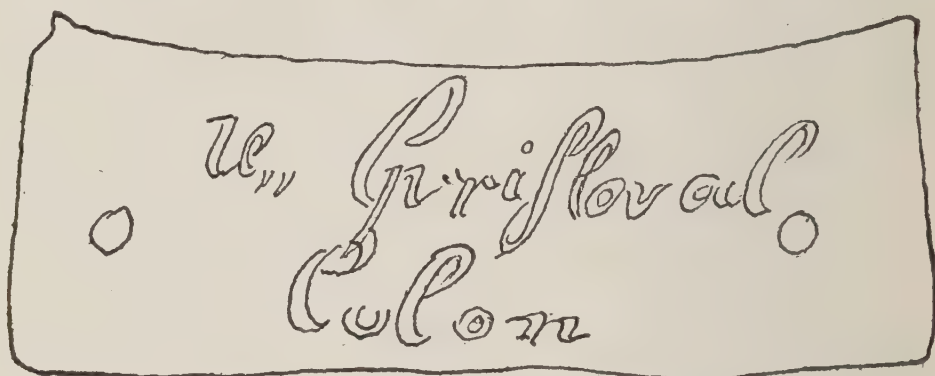 U,, Cristoval
Colon